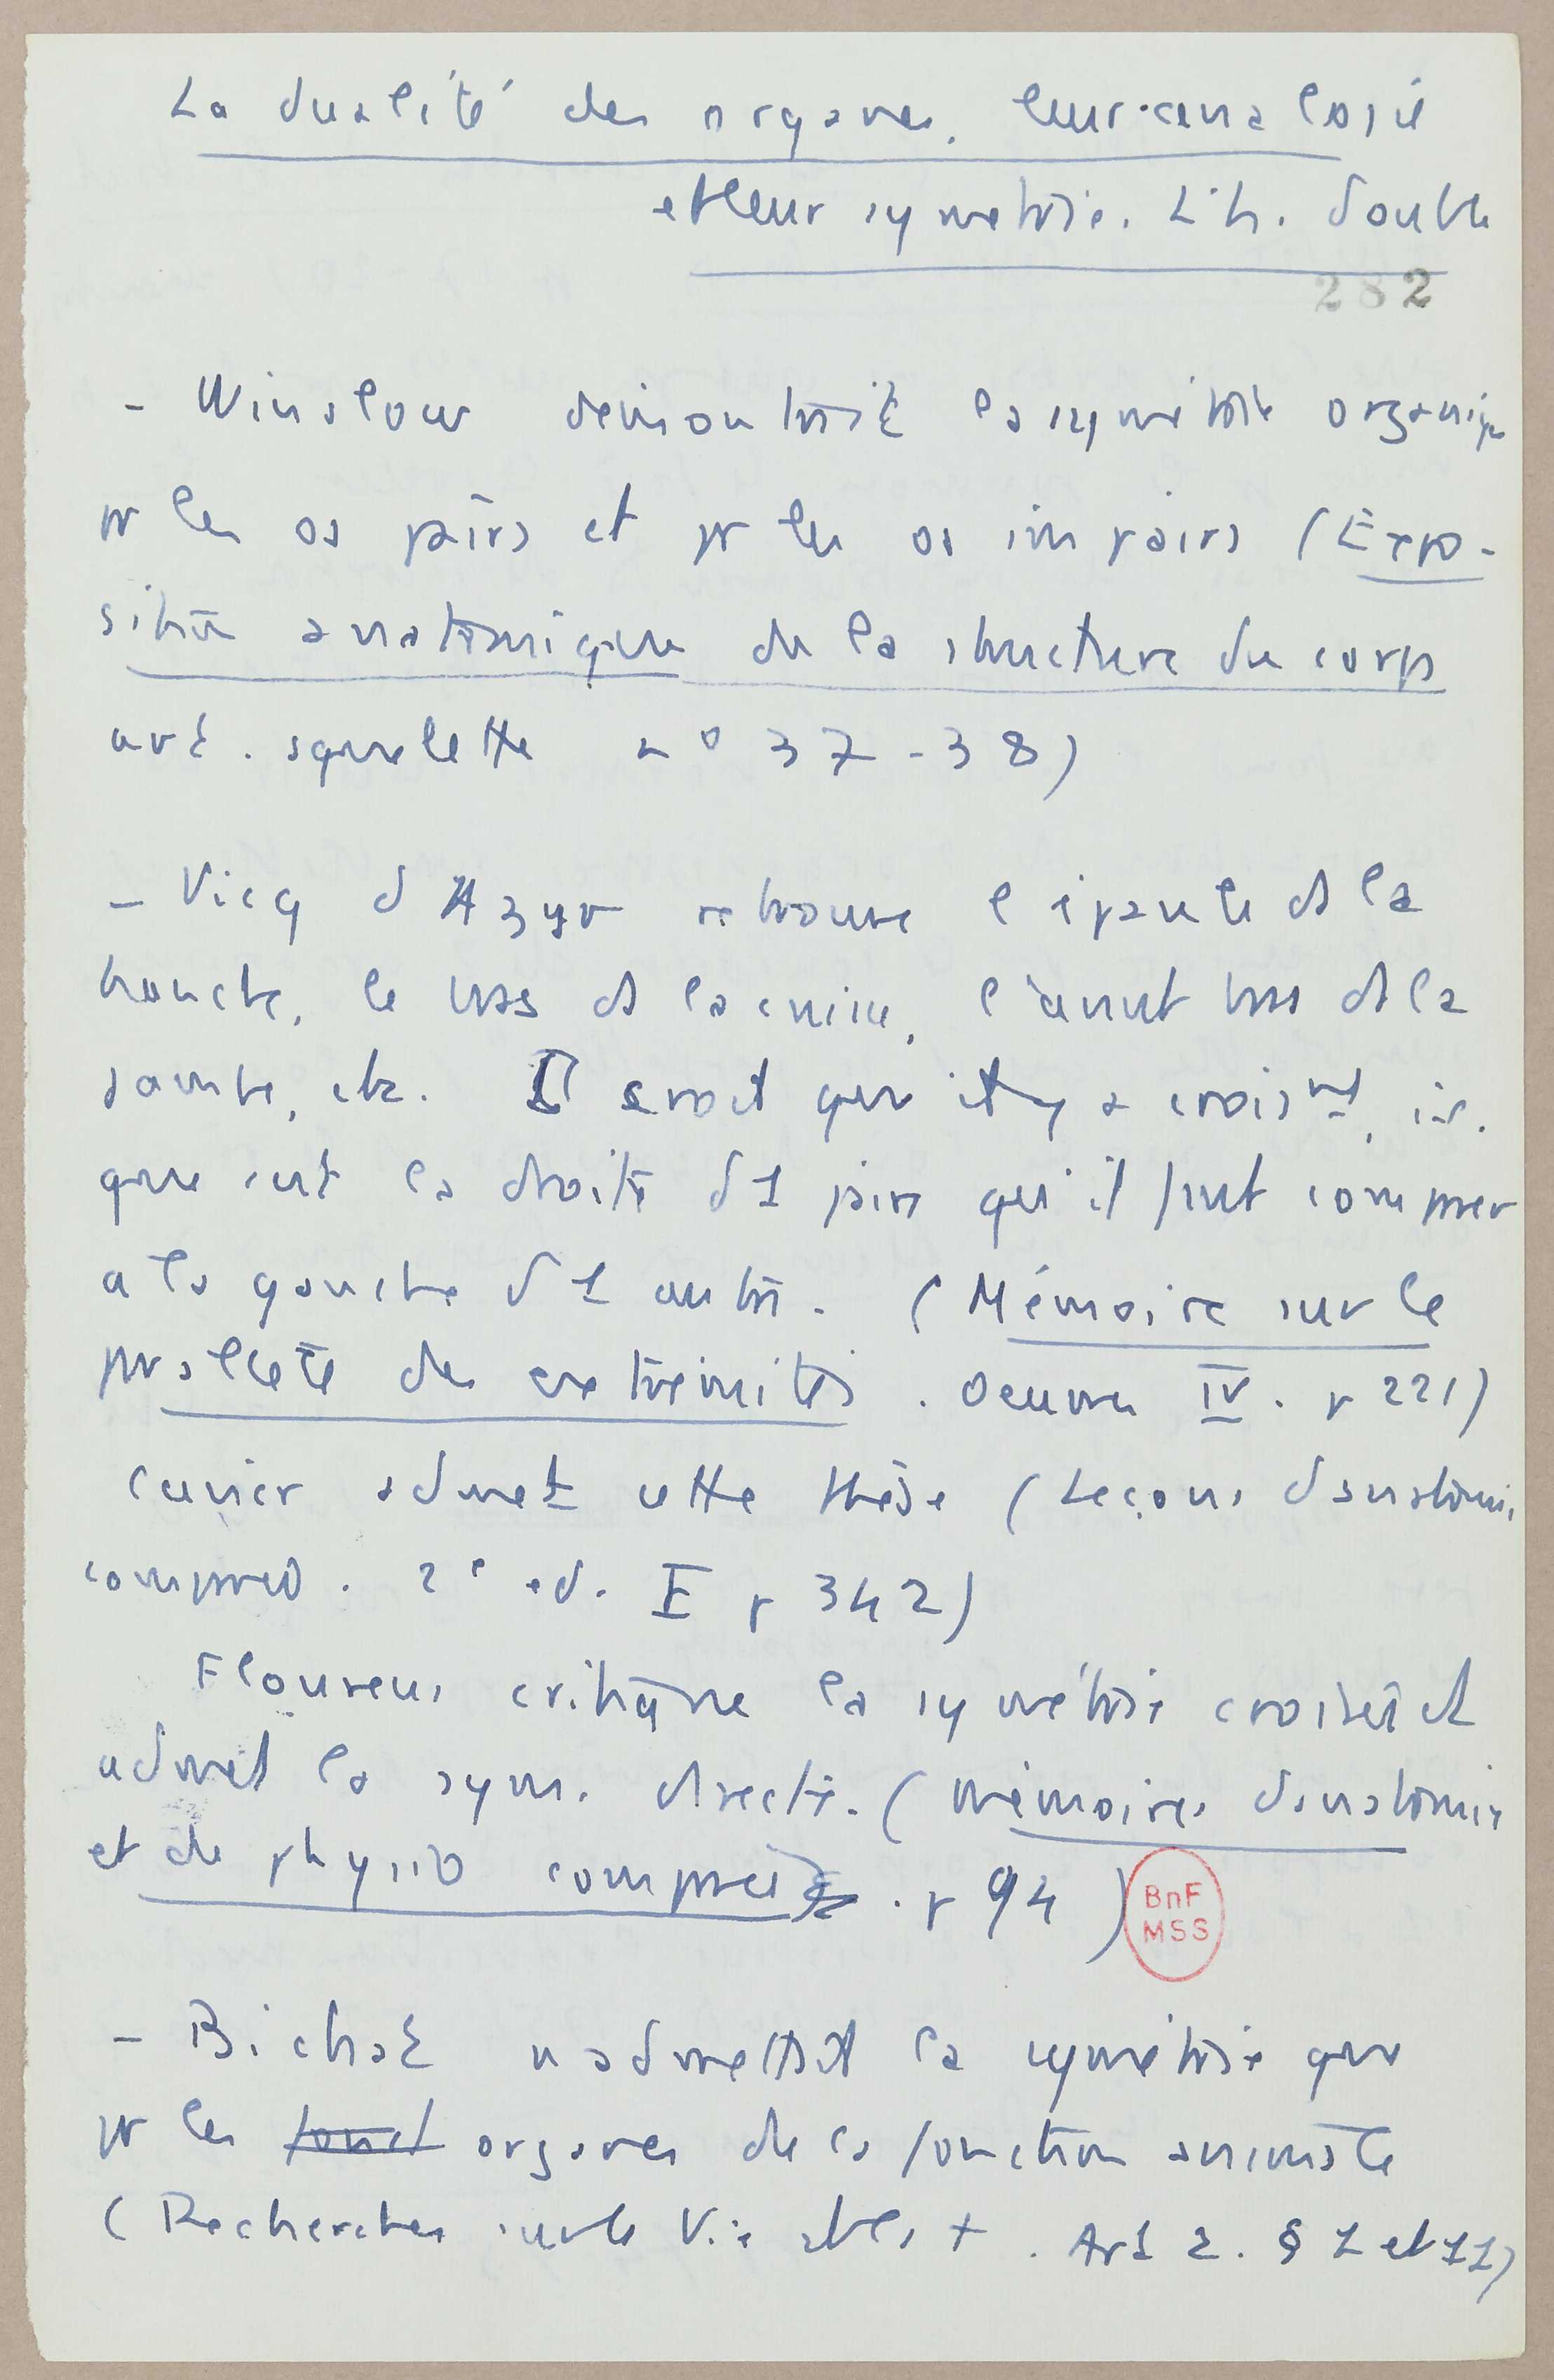 La dualité des organes, leur analogie
et leur symétrie. L'h. double
282
- Winslow démontrait la symétrie organiq
pr les os pairs et pr les os impairs (Expo-
sition anatomique de la structure du corps
art. squelette n° 37-38)
- Vicq d'Azyr retrouve l'épaule ds la
hanche, le bras ds la cuisse, l'avant bras ds la
jambe, etc. Il croit que il y a croismt, i.e.
que c'est la droite d'1 paire qu'il faut comparer
a la gauche d'1 autre. (Mémoire sur le
prallele des extrémités. Oeuvres IV. p 221)
Cuvier admet cette thèse (Leçons d'anatomie
comparée. 2e ed. I p 342)
Flourens critique la symétrie croisée et
admet la sym. directe. (Mémoires d'anatomie
et de physio comparée. p 94)
BnF
MSS
- Bichat n'admettait la symétrie que
pr les fonct organes de la fonction animale
(Recherches sur la Vie et la +. Art 2. § 1 et 11)